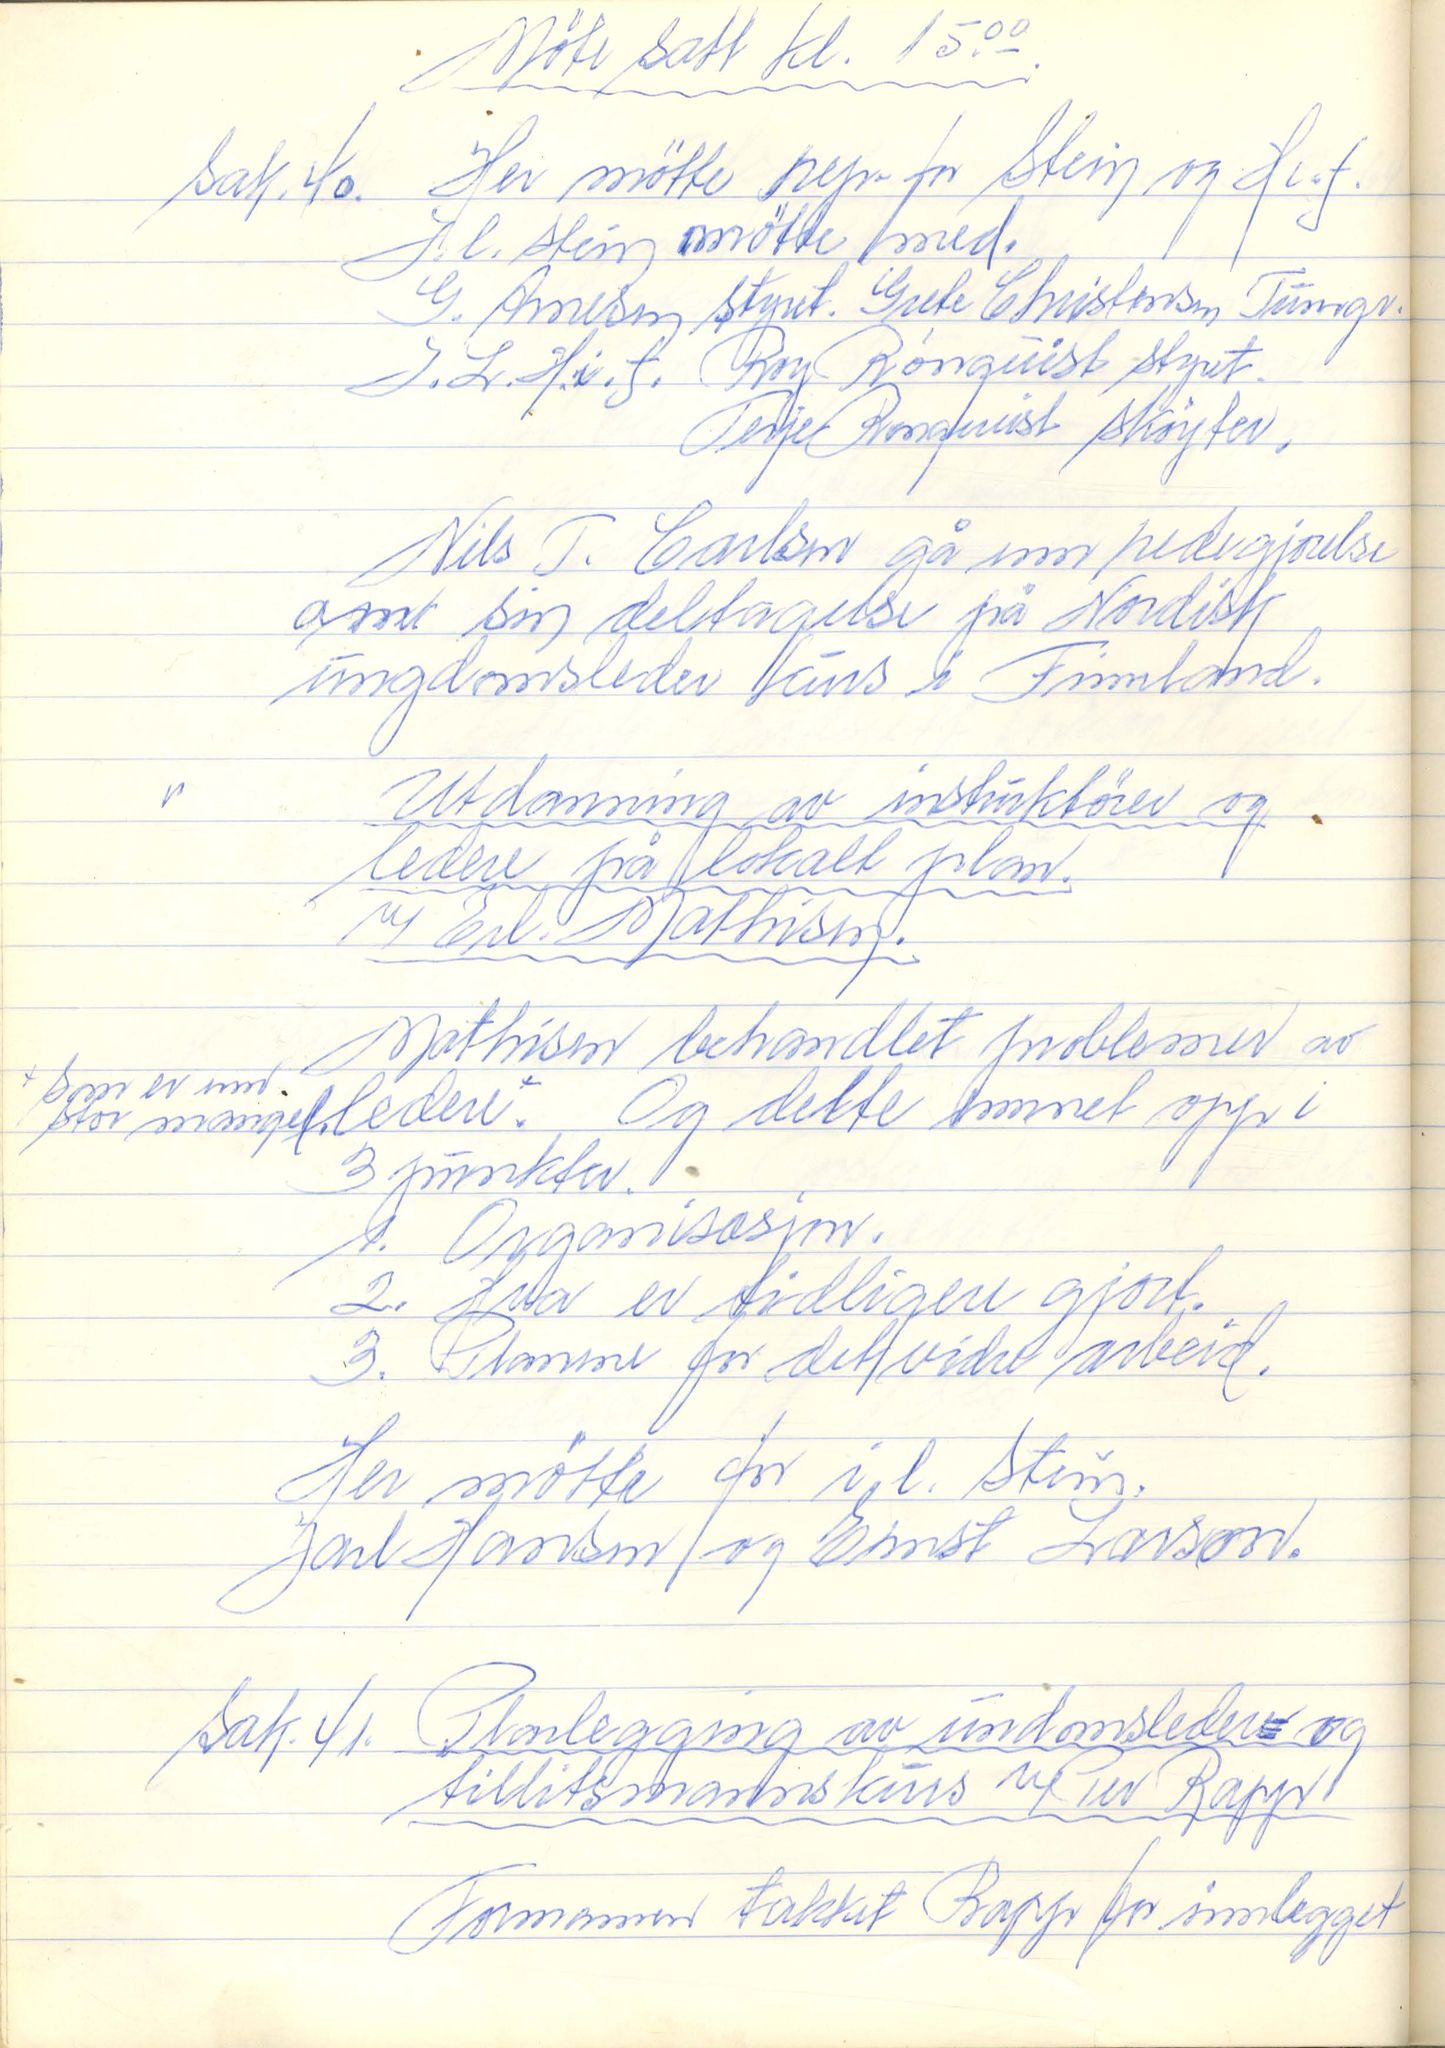 Möte satt kl. 15.00.
Sak. 40. Her mötte repr for Stein og H.i.f.
I.l. Stein mötte med.
G. Arnesen styret. Grete Christensen Turngr.
I.L. H.i.f. Roy Rönquist styret.
Terje Rönquist skøyter.
Nils T. Carlsen ga en redegjørelse
om sin deltagelse på Nordisk
ungdomsleder kurs i Finnland.
" Utdanning av instuktörer og
ledere på lokalt plan.
v/ Erl. Mathisen.
Mathisen behandlet problemer av
ledere.+ Og dette emnet opp i
+ som er en
stor mangel.
3 punkter.
1. Organisasjon.
2. Hva er tidligere gjort.
3. Planene for det vidre arbeid.
Her mötte for i.l. Stein.
Jarl Hansen og Ernst Larson.
Sak. 41. Planlegging av undomsledere og
tillitsmannskurs v/ Per Rapp
Formannen takket Rapp for innlegget